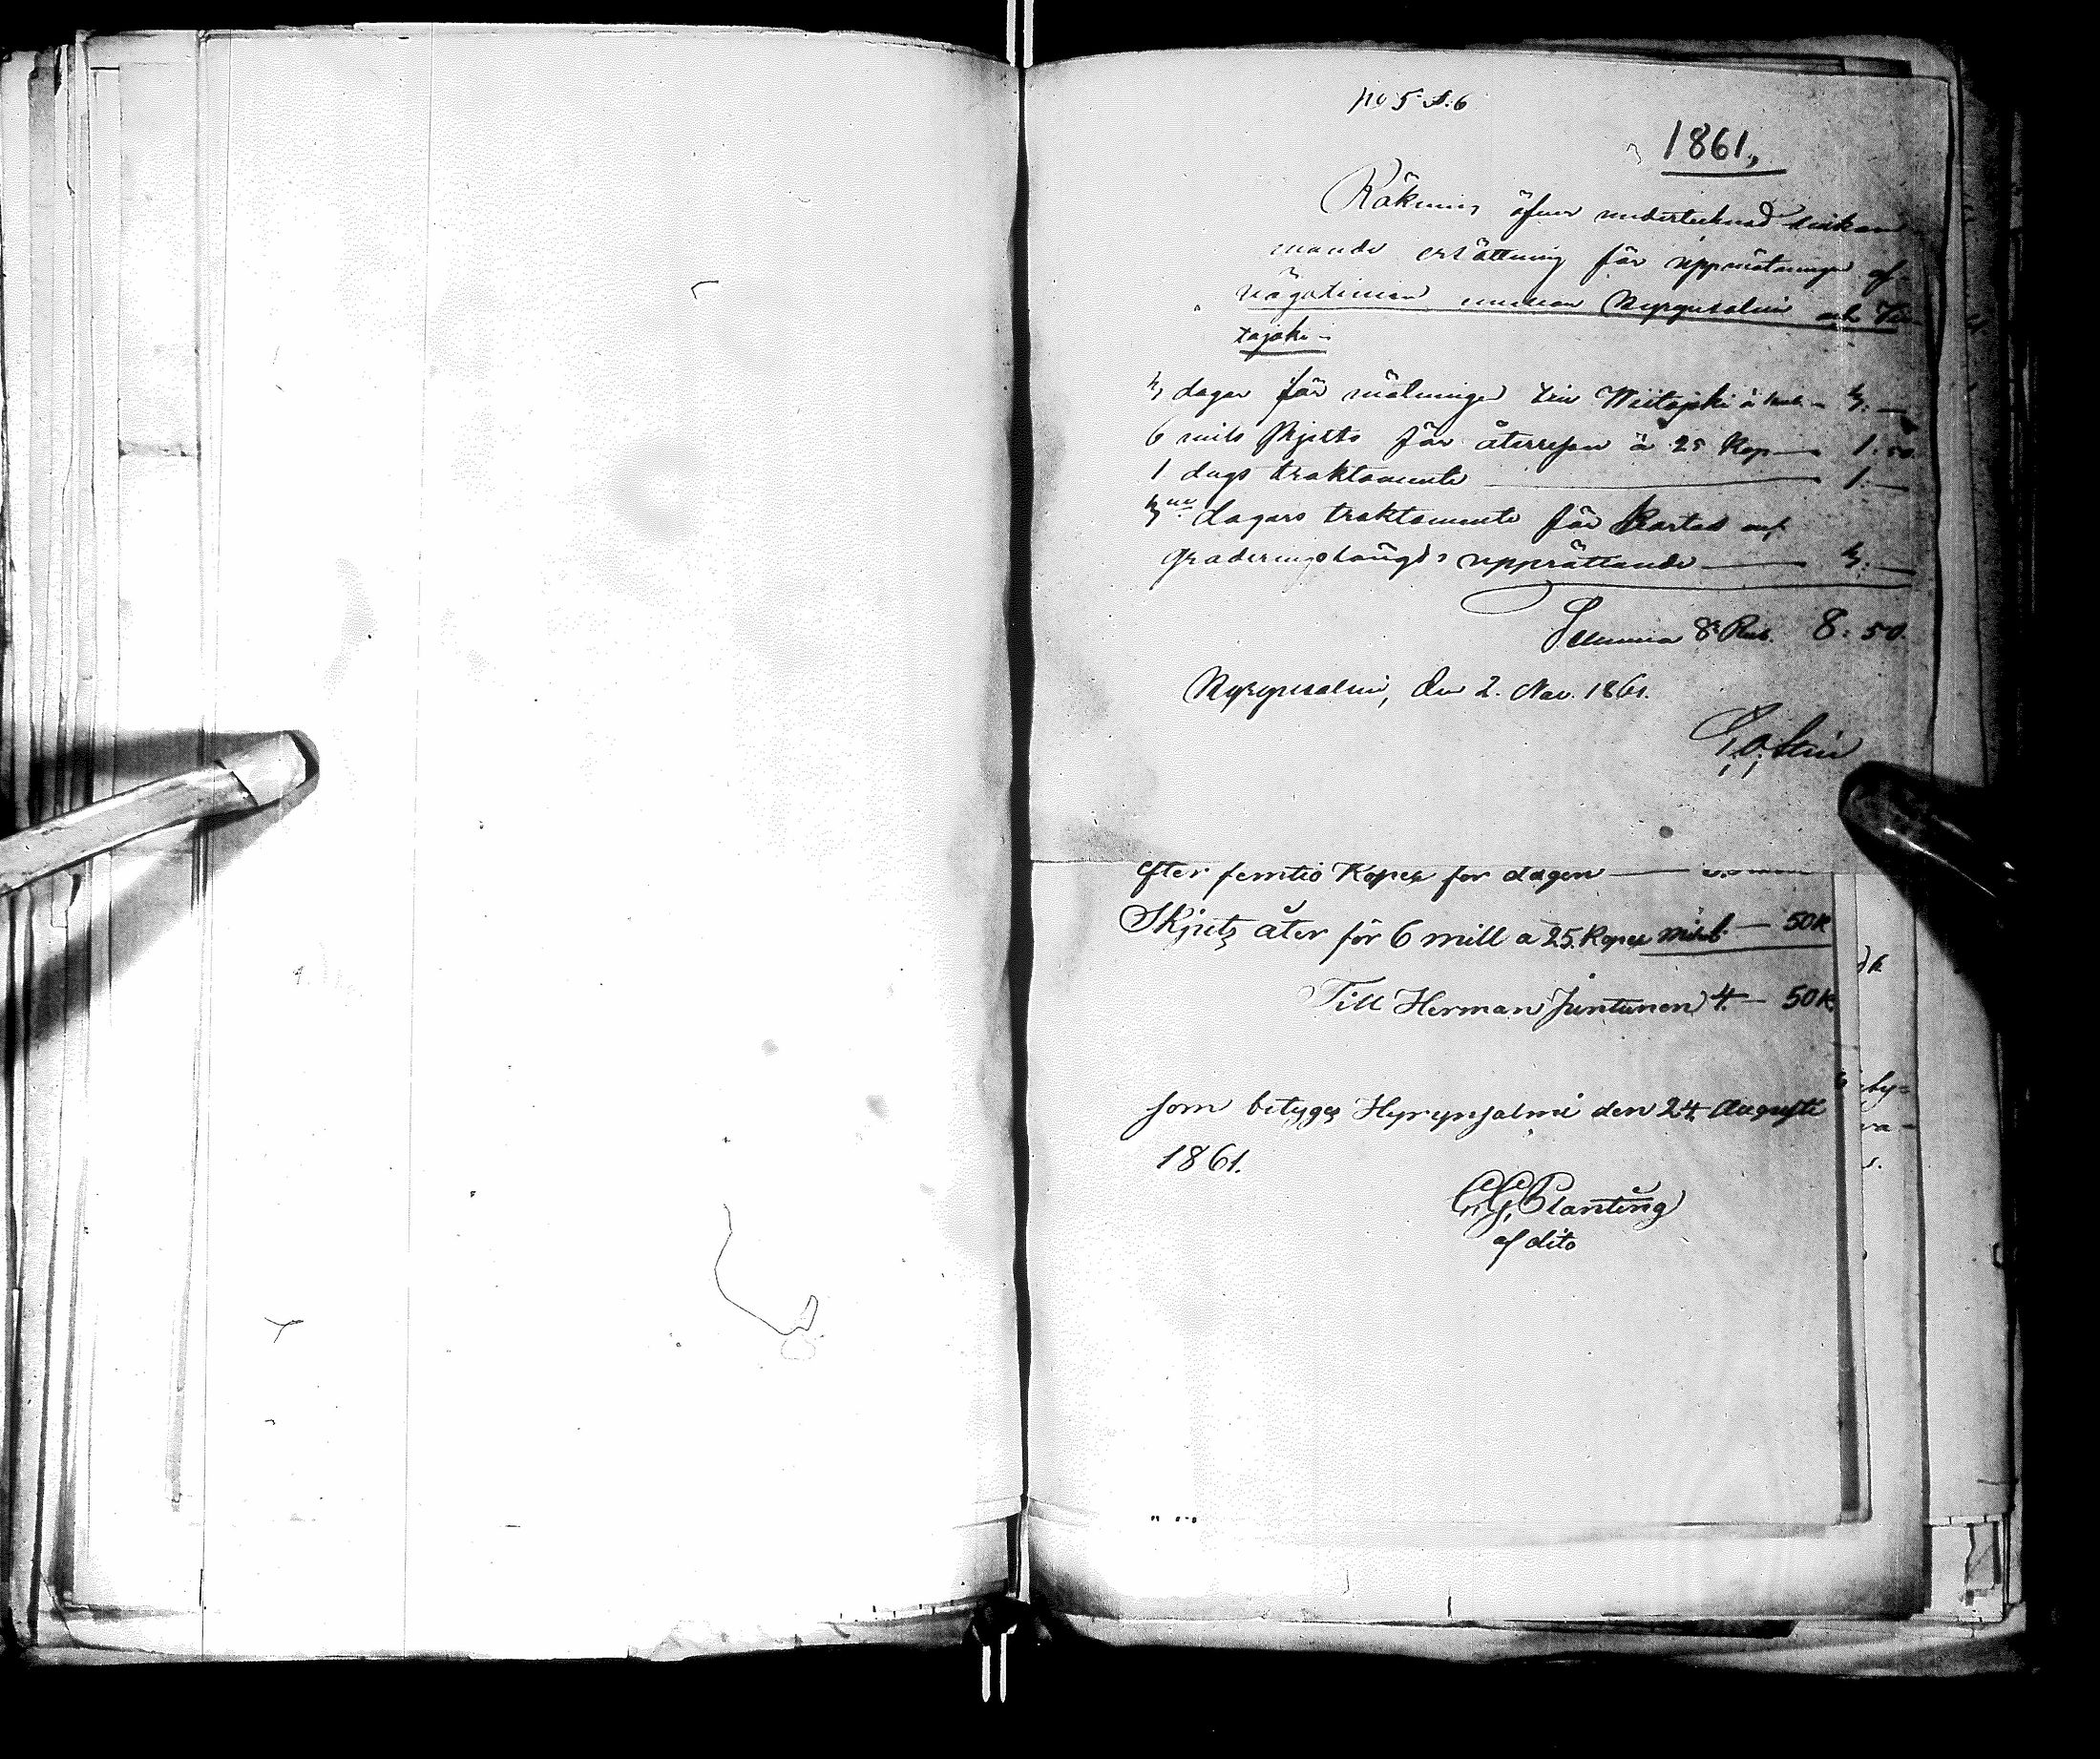 No 5. S. 6
1861.,
Räkning öfver undertecknad tillkom
mande ersättning för uppmätningen af
vägalinien mellan Hyrynsalmi och Vii-
tajoki -
3 dagar för mätningen till Wiitajoki à 1 rub. - 3: -
6 mils skjuts för återresan à 25 Kop - 1. 50.
1 dags traktamente - 1: -
3ne dagars traktamente för Kartas och
graderingslängds upprättande - 3: -
Summa Rub. 8: 50.
Hyrynsalmi, den 2. Nov. 1861.
efter femtio Kopek for dagen -
Skjuts åter för 6 mill a 25. Kopek milet - 50 K
Till Herman Juntunen 4. - 50 K.
som betyges Hyrynsalmi den 24 Augusti
1861.
C. G. Planting
af dito